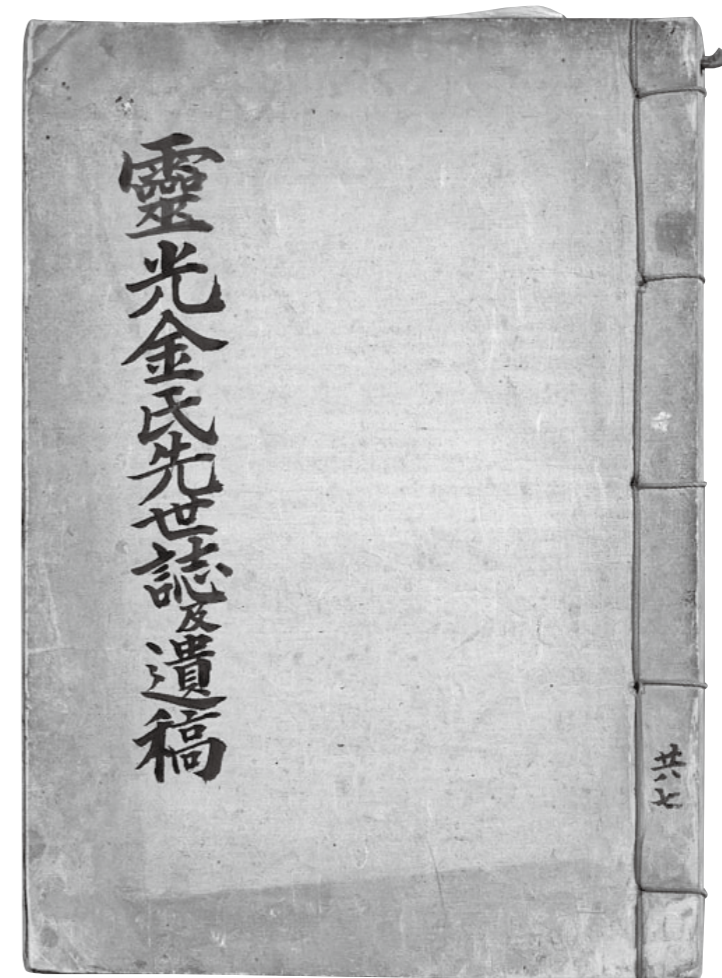 靈光金氏先世誌及遺稿
共七